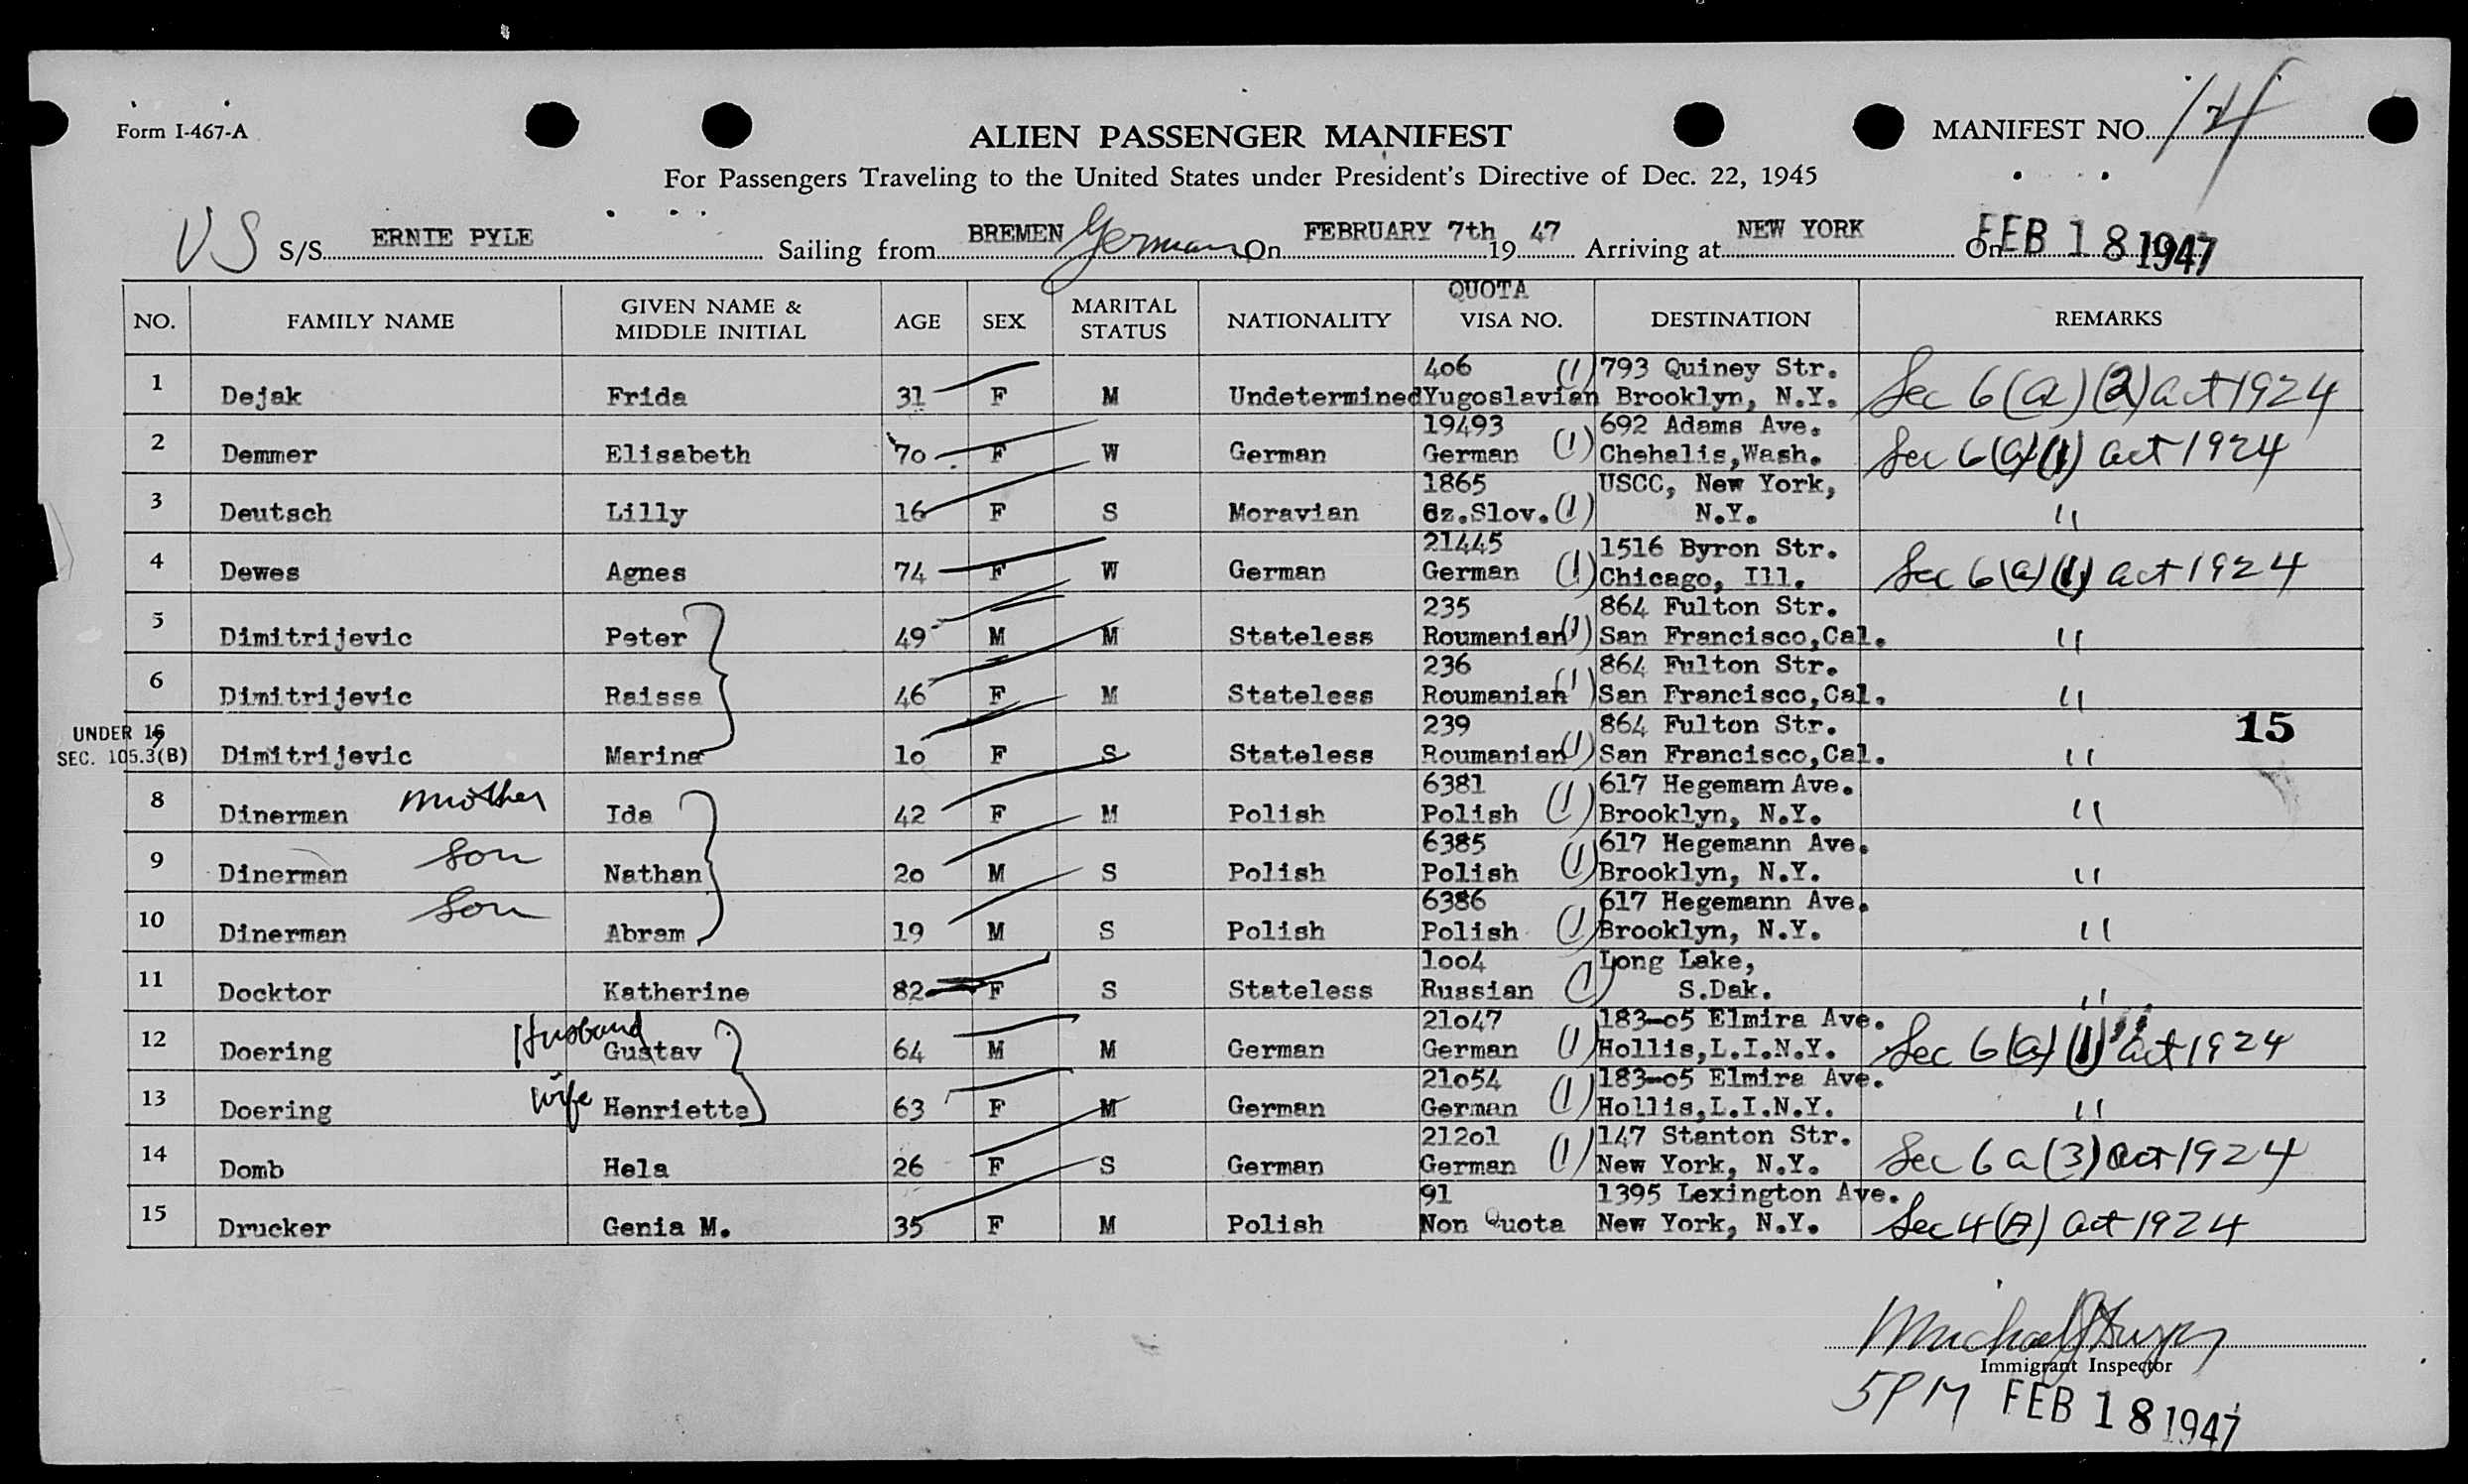 Form I-467-A
ALIEN PASSENGER MANIFEST
MANIFEST NO.
For Passengers Traveling to the United States under President's Directive of Dec. 22, 1945
US S/S ERNIE PYLE Sailing from BREMEN German On FEBRUARY 7th 19 47 Arriving at NEW YORK On FEB 18 1947
NO. FAMILY NAME GIVEN NAME & MIDDLE INITIAL AGE SEX MARITAL STATUS NATIONALITY QUOTA VISA NO. DESTINATION REMARKS
406 (1) 793 Quincy Str.
1 Dejak Frida 31 F M Undetermined Yugoslavian Brooklyn, N.Y. Sec 6(a)(2) act 1924
19493 692 Adams Ave.
2 Demmer Elisabeth 70 F W German German (1) Chehalis,Wash. Sec 6(a)(1) act 1924
1865 USCC, New York,
3 Deutsch Lilly 16 F S Moravian Cz.Slov. (1) N.Y. "
21445 1516 Byron Str.
4 Dewes Agnes 74 F W German German (1) Chicago, Ill. Sec 6(a)(1) act 1924
235 864 Fulton Str.
5 Dimitrijevic Peter 49 M M Stateless Roumanian (1) San Francisco,Cal. "
236 864 Fulton Str.
6 Dimitrijevic Raissa 46 F M Stateless Roumanian (1) San Francisco,Cal. "
UNDER 16 239 864 Fulton Str. 15
SEC. 105.3(B) Dimitrijevic Marina 10 F S Stateless Roumanian (1) San Francisco,Cal. "
6381 617 Hegemam Ave.
8 Dinerman mother Ida 42 F M Polish Polish (1) Brooklyn, N.Y. "
6385 617 Hegemann Ave.
9 Dinerman son Nathan 20 M S Polish Polish (1) Brooklyn, N.Y. "
6386 617 Hegemann Ave.
10 Dinerman son Abram 19 M S Polish Polish (1) Brooklyn, N.Y. "
1004 Long Lake,
11 Docktor Katherine 82 F S Stateless Russian (1) S.Dak. "
21047 183-05 Elmira Ave.
12 Doering Husband Gustav 64 M M German German (1) Hollis,L.I.N.Y. Sec 6(a)(1) act 1924
21054 183-05 Elmira Ave.
13 Doering wife Henriette 63 F M German German (1) Hollis,L.I.N.Y. "
21201 147 Stanton Str.
14 Domb Hela 26 F S German German (1) New York, N.Y. Sec 6 a (3) act 1924
91 1395 Lexington Ave.
15 Drucker Genia M. 35 F M Polish Non Quota New York, N.Y. Sec 4(A) act 1924
Michael
Immigrant Inspector
5PM FEB 18 1947